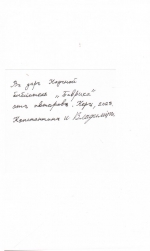 Въ даръ Научной
библіотекѣ „Таврика"
отъ авторовъ. Керчь, 2003.
Константинъ и Владиміръ